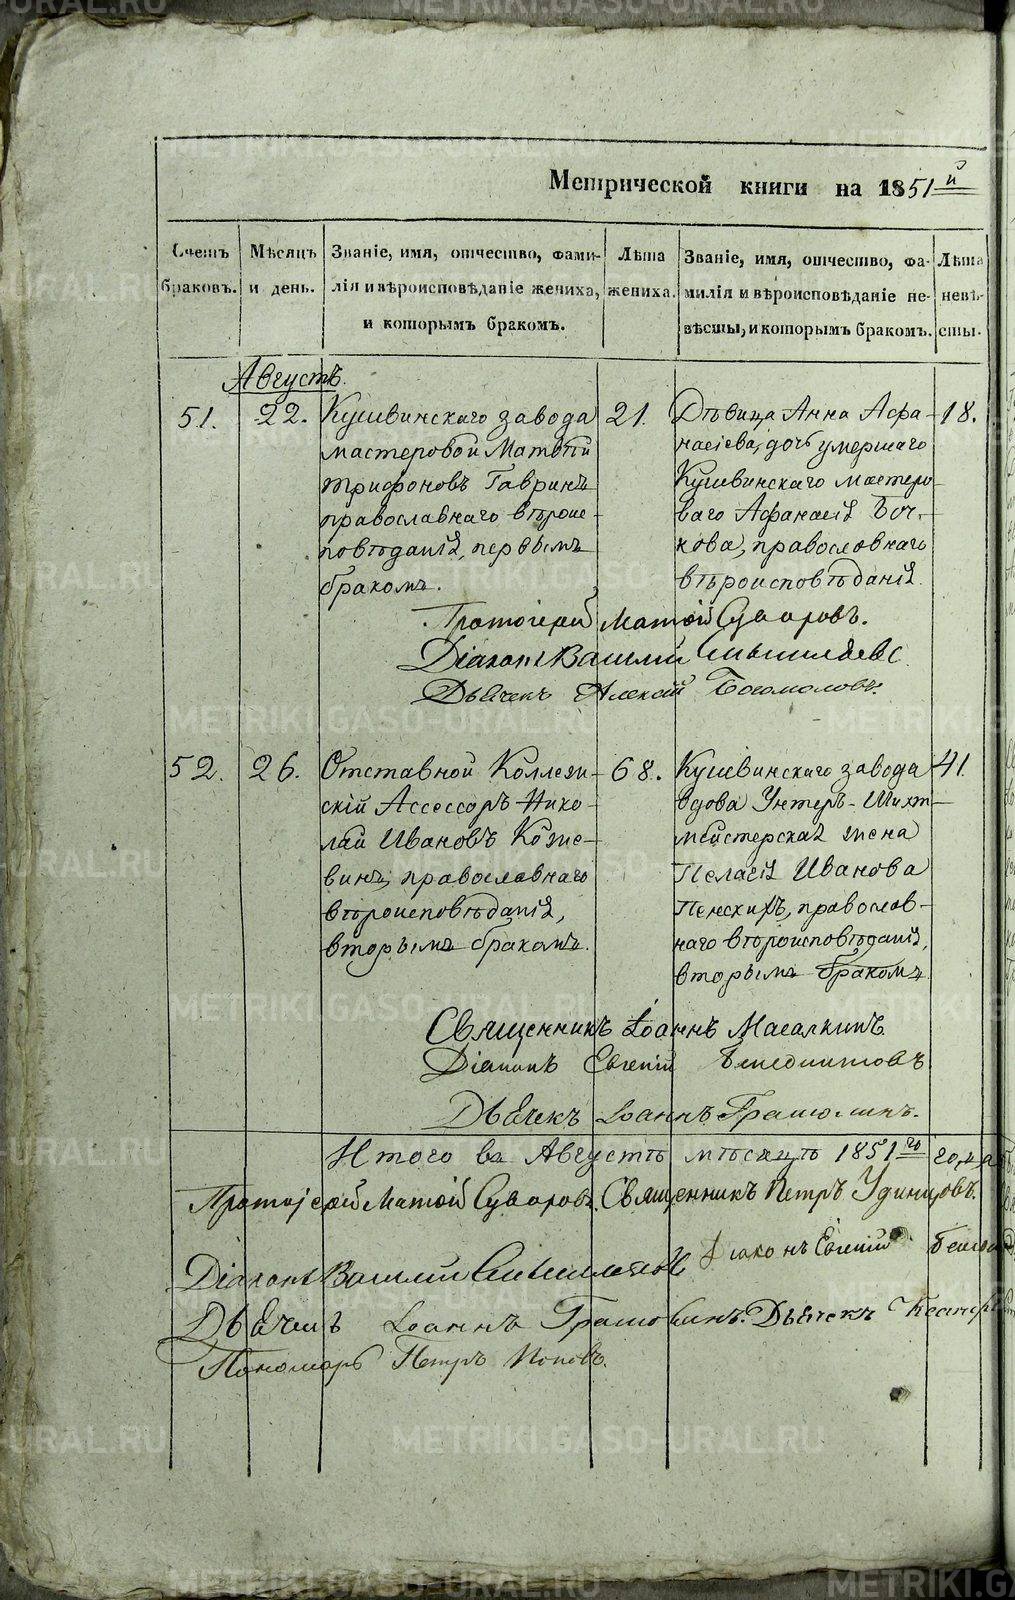 METRIKI.GASO-URAL.RU
Метрической книги на 1851й
Счетъ браковъ.
Мѣсяцъ и день.
Званіе, имя, отчество, фами-
лія и вѣроисповѣданіе жениха,
и которымъ бракомъ.
Лѣта жениха.
Званіе, имя, отчество, фа-
милія и вѣроисповѣданіе не-
вѣсты, и которымъ бракомъ.
Лѣта невѣ-
сты.
Августъ.
51. 22.
Кушвинскаго завода
мастеровой Матѳей
Трифоновъ Гавринъ
православнаго вѣроис-
повѣданія, первымъ
бракомъ.
21.
Дѣвица Анна Афа-
насіева, дочь умершаго
Кушвинскаго мастеро-
ваго Афанасія Боч-
кова, православнаго
вѣроисповѣданія.
18.
Протоіерей Матѳей Суворовъ.
Діаконъ Василій
Дьячекъ Алексій Богомоловъ.
52. 26.
Отставной Коллеж-
скій Ассессоръ Нико-
лай Ивановъ Коже-
винъ, православнаго
вѣроисповѣданія,
вторымъ бракомъ.
68.
Кушвинскаго завода
вдова Унтеръ-Шихт-
мейстерская жена
Пелагія Иванова
православ-
наго вѣроисповѣданія,
вторымъ бракомъ
41.
Священникъ Іоаннъ Масалкинъ
Діаконъ Евгеній
Дьячекъ Іоаннъ
Итого въ Августѣ мѣсяцѣ 1851го года
Протоіерей Матѳей Суворовъ. Священникъ Петръ Удинцовъ.
Діаконъ Василій
Діаконъ Евгеній
Дьячекъ Іоаннъ Дьячекъ
Пономарь Петръ Поповъ.